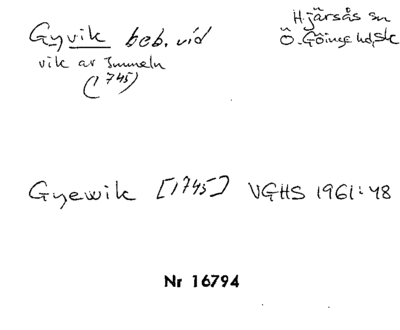 Gyvik beb. vid
vik av Immeln
(1745)
Hjärsås sn
Ö. Göinge hd, Sk
Gyewik [1745] VGHS 1961:48
Nr 16794